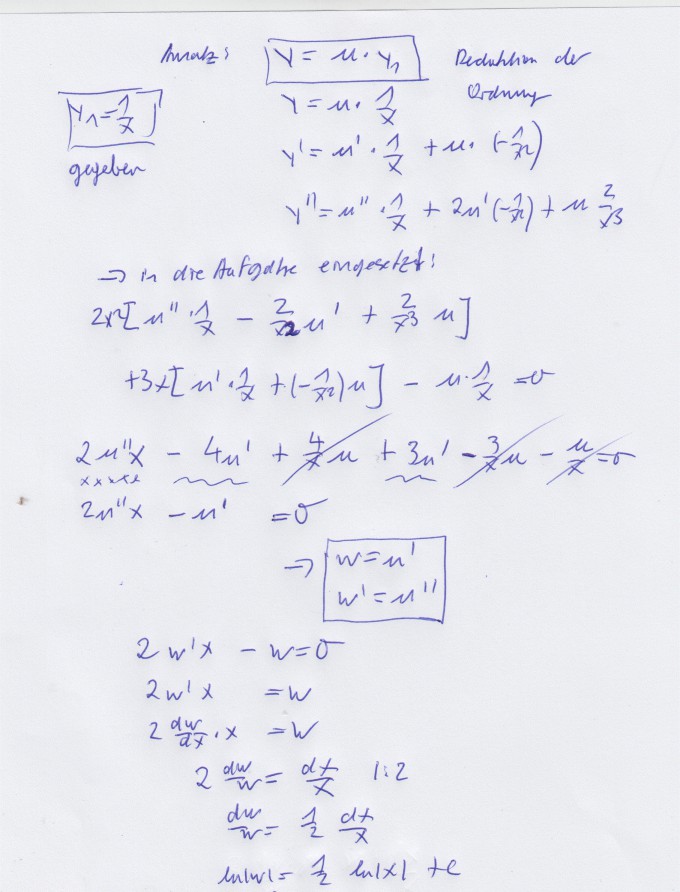 Ansatz: y = u · y₁ Reduktion der Ordnung
y₁ = 1/x
gegeben
y = u · 1/x
y' = u' · 1/x + u · (-1/x²)
y'' = u'' · 1/x + 2u'(-1/x²) + u 2/x³
→ in die Aufgabe eingesetzt:
2x²[u'' · 1/x - 2/x² u' + 2/x³ u]
+3x[u' · 1/x + (-1/x²)u] - u · 1/x = 0
2u''x - 4u' + 4/x u + 3u' - 3/x u - u/x = 0
2u''x - u' = 0
→ w = u'
w' = u''
2w'x - w = 0
2w'x = w
2 dw/dx · x = w
2 dw/w = dx/x |:2
dw/w = 1/2 dx/x
ln|w| = 1/2 ln|x| + c